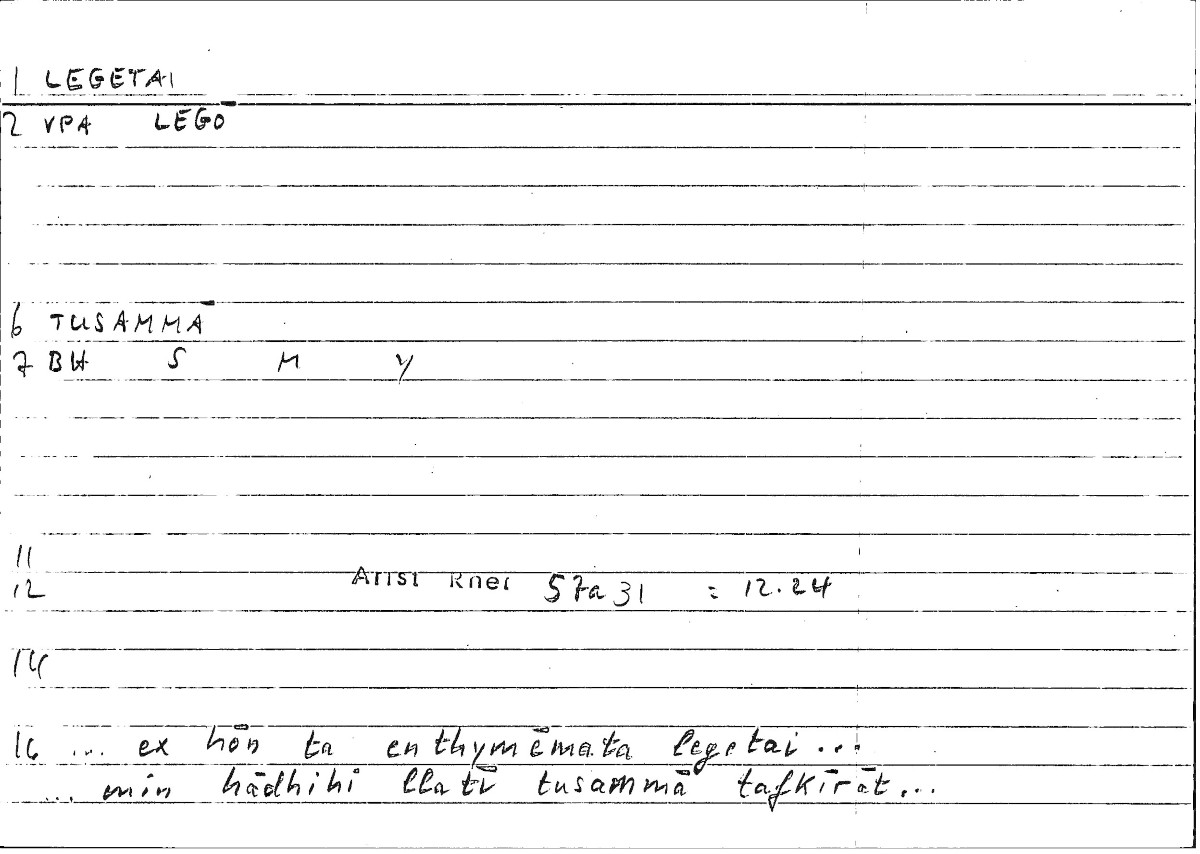 1 LEGETAI
2 VPA LEGŌ
6 TUSAMMĀ
7 BH S M Y
11
12 Arist Rhet 57a31 = 12.24
14
16 ... ex hōn ta enthymēmata legetai ...
... min hādhihi llatī tusammā tafkīrāt ...